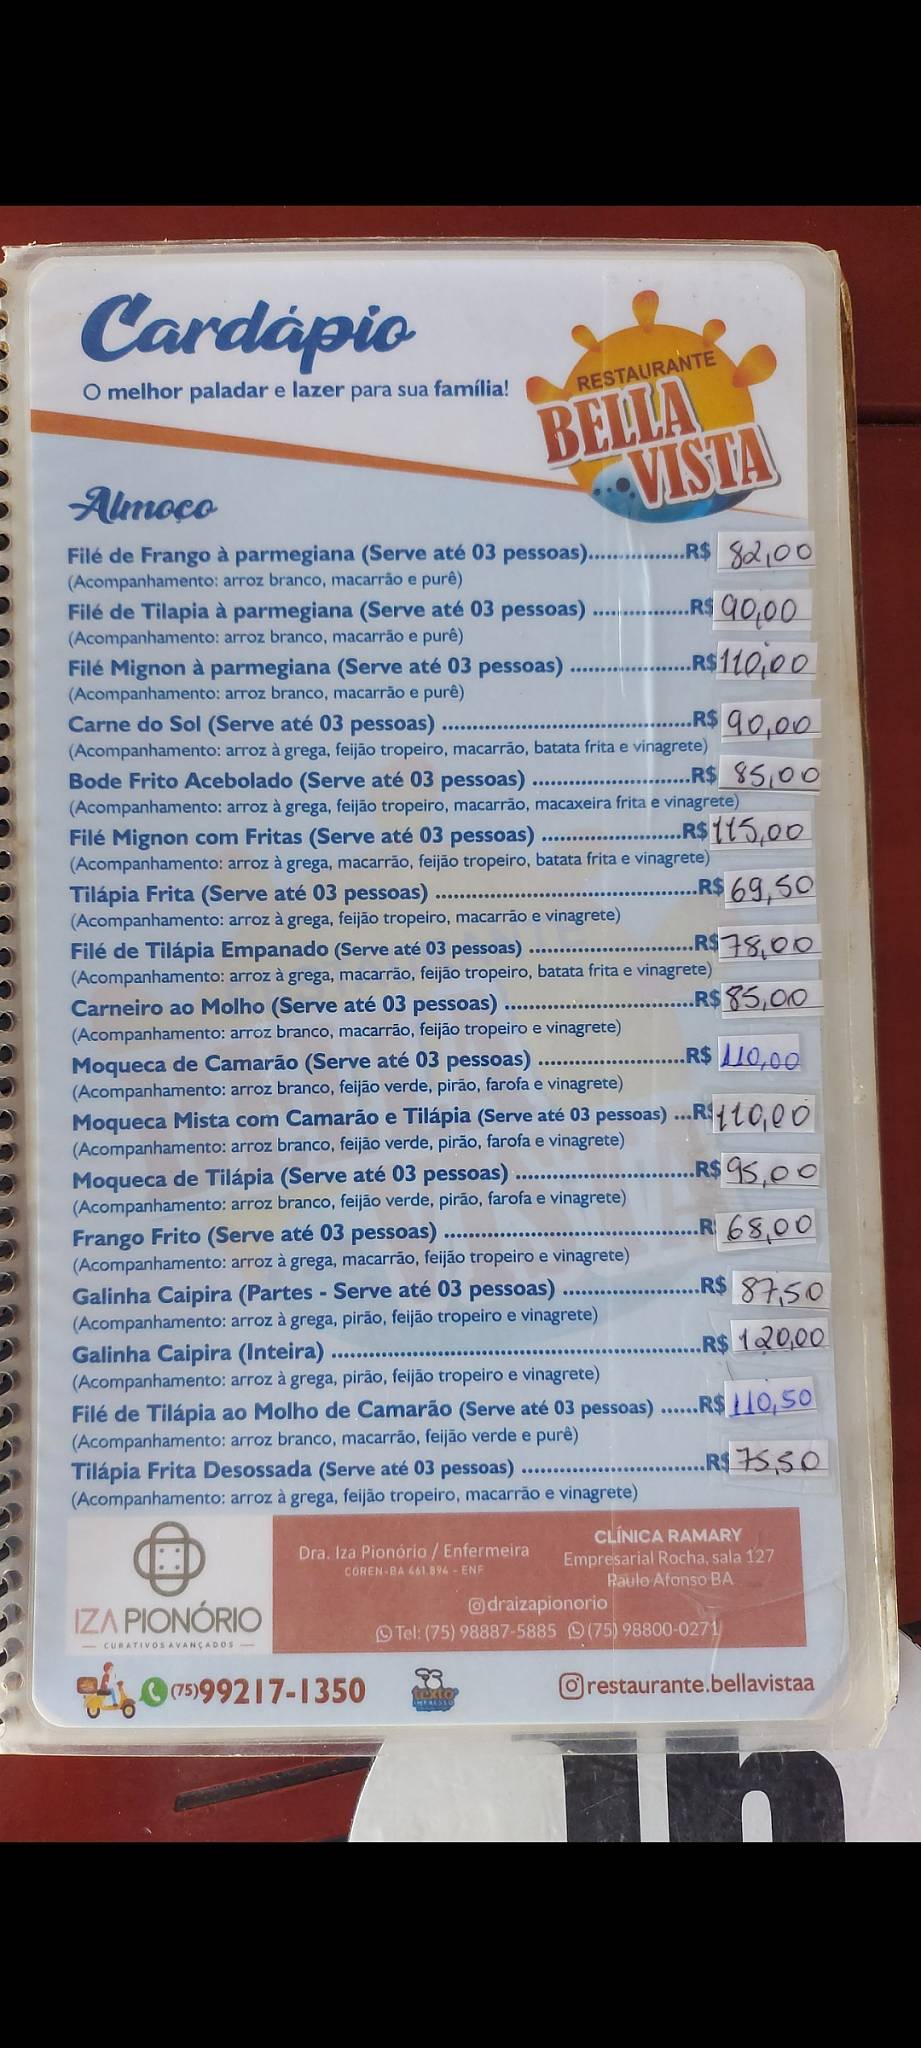 Cardápio
O melhor paladar e lazer para sua família!
RESTAURANTE
BELLA
VISTA
Almoço
Filé de Frango à parmegiana (Serve até 03 pessoas)................R$ 82,00
(Acompanhamento: arroz branco, macarrão e purê)
Filé de Tilapia à parmegiana (Serve até 03 pessoas) ................R$ 90,00
(Acompanhamento: arroz branco, macarrão e purê)
Filé Mignon à parmegiana (Serve até 03 pessoas) ....................R$ 110,00
(Acompanhamento: arroz branco, macarrão e purê)
Carne do Sol (Serve até 03 pessoas) .........................................R$ 90,00
(Acompanhamento: arroz à grega, feijão tropeiro, macarrão, batata frita e vinagrete)
Bode Frito Acebolado (Serve até 03 pessoas) ..........................R$ 85,00
(Acompanhamento: arroz à grega, feijão tropeiro, macarrão, macaxeira frita e vinagrete)
Filé Mignon com Fritas (Serve até 03 pessoas) .......................R$ 115,00
(Acompanhamento: arroz à grega, macarrão, feijão tropeiro, batata frita e vinagrete)
Tilápia Frita (Serve até 03 pessoas) ...........................................R$ 69,50
(Acompanhamento: arroz à grega, feijão tropeiro, macarrão e vinagrete)
Filé de Tilápia Empanado (Serve até 03 pessoas) ...........................R$ 78,00
(Acompanhamento: arroz à grega, macarrão, feijão tropeiro, batata frita e vinagrete)
Carneiro ao Molho (Serve até 03 pessoas) ...............................R$ 85,00
(Acompanhamento: arroz branco, macarrão, feijão tropeiro e vinagrete)
Moqueca de Camarão (Serve até 03 pessoas) ........................R$ 110,00
(Acompanhamento: arroz branco, feijão verde, pirão, farofa e vinagrete)
Moqueca Mista com Camarão e Tilápia (Serve até 03 pessoas) ...R$ 110,00
(Acompanhamento: arroz branco, feijão verde, pirão, farofa e vinagrete)
Moqueca de Tilápia (Serve até 03 pessoas) .............................R$ 95,00
(Acompanhamento: arroz branco, feijão verde, pirão, farofa e vinagrete)
Frango Frito (Serve até 03 pessoas) ..........................................R 68,00
(Acompanhamento: arroz à grega, macarrão, feijão tropeiro e vinagrete)
Galinha Caipira (Partes - Serve até 03 pessoas) .......................R$ 87,50
(Acompanhamento: arroz à grega, pirão, feijão tropeiro e vinagrete)
Galinha Caipira (Inteira) .............................................................R$ 120,00
(Acompanhamento: arroz à grega, pirão, feijão tropeiro e vinagrete)
Filé de Tilápia ao Molho de Camarão (Serve até 03 pessoas) ......R$ 110,50
(Acompanhamento: arroz branco, macarrão, feijão verde e purê)
Tilápia Frita Desossada (Serve até 03 pessoas) ..............................R$ 75,50
(Acompanhamento: arroz à grega, feijão tropeiro, macarrão e vinagrete)
IZA PIONÓRIO
CURATIVOS AVANÇADOS
Dra. Iza Pionório / Enfermeira
COREN-BA 461.894 - ENF
CLÍNICA RAMARY
Empresarial Rocha, sala 127
Paulo Afonso BA
@draizapionorio
Tel: (75) 98887-5885 (75) 98800-0271
(75)99217-1350
texto
IMPRESSO
restaurante.bellavistaa